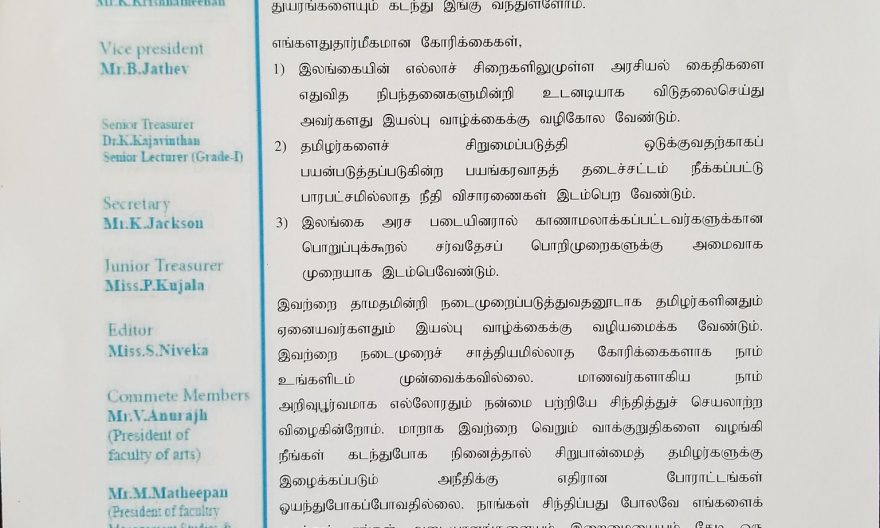 Mr.K.Krishnameenan
Vice president
Mr.B.Jathev
Senior Treasurer
Dr.K.Kajavinthan
Senior Lecturer (Grade-I)
Secretary
Mr.K.Jackson
Junior Treasurer
Miss.P.Kujala
Editor
Miss.S.Niveka
Commete Members
Mr.V.Anurajh
(President of
faculty of arts)
Mr.M.Matheepan
(President of faculty
துயரங்களையும் கடந்து இங்கு வந்துள்ளோம்.
எங்களதுதார்மீகமான கோரிக்கைகள்,
1) இலங்கையின் எல்லாச் சிறைகளிலுமுள்ள அரசியல் கைதிகளை
எதுவித நிபந்தனைகளுமின்றி உடனடியாக விடுதலைசெய்து
அவர்களது இயல்பு வாழ்க்கைக்கு வழிகோல வேண்டும்.
2) தமிழர்களைச் சிறுமைப்படுத்தி ஒடுக்குவதற்காகப்
பயன்படுத்தப்படுகின்ற பயங்கரவாதத் தடைச்சட்டம் நீக்கப்பட்டு
பாரபட்சமில்லாத நீதி விசாரணைகள் இடம்பெற வேண்டும்.
3) இலங்கை அரச படையினரால் காணாமலாக்கப்பட்டவர்களுக்கான
பொறுப்புக்கூறல் சர்வதேசப் பொறிமுறைகளுக்கு அமைவாக
முறையாக இடம்பெவேண்டும்.
இவற்றை தாமதமின்றி நடைமுறைப்படுத்துவதனூடாக தமிழர்களினதும்
ஏனையவர்களதும் இயல்பு வாழ்க்கைக்கு வழியமைக்க வேண்டும்.
இவற்றை நடைமுறைச் சாத்தியமில்லாத கோரிக்கைகளாக நாம்
உங்களிடம் முன்வைக்கவில்லை. மாணவர்களாகிய நாம்
அறிவுபூர்வமாக எல்லோரதும் நன்மை பற்றியே சிந்தித்துச் செயலாற்ற
விழைகின்றோம். மாறாக இவற்றை வெறும் வாக்குறுதிகளை வழங்கி
நீங்கள் கடந்துபோக நினைத்தால் சிறுபான்மைத் தமிழர்களுக்கு
இழைக்கப்படும் அநீதிக்கு எதிரான போராட்டங்கள்
ஓயந்துபோகப்போவதில்லை. நாங்கள் சிந்திப்பது போலவே எங்களைக்